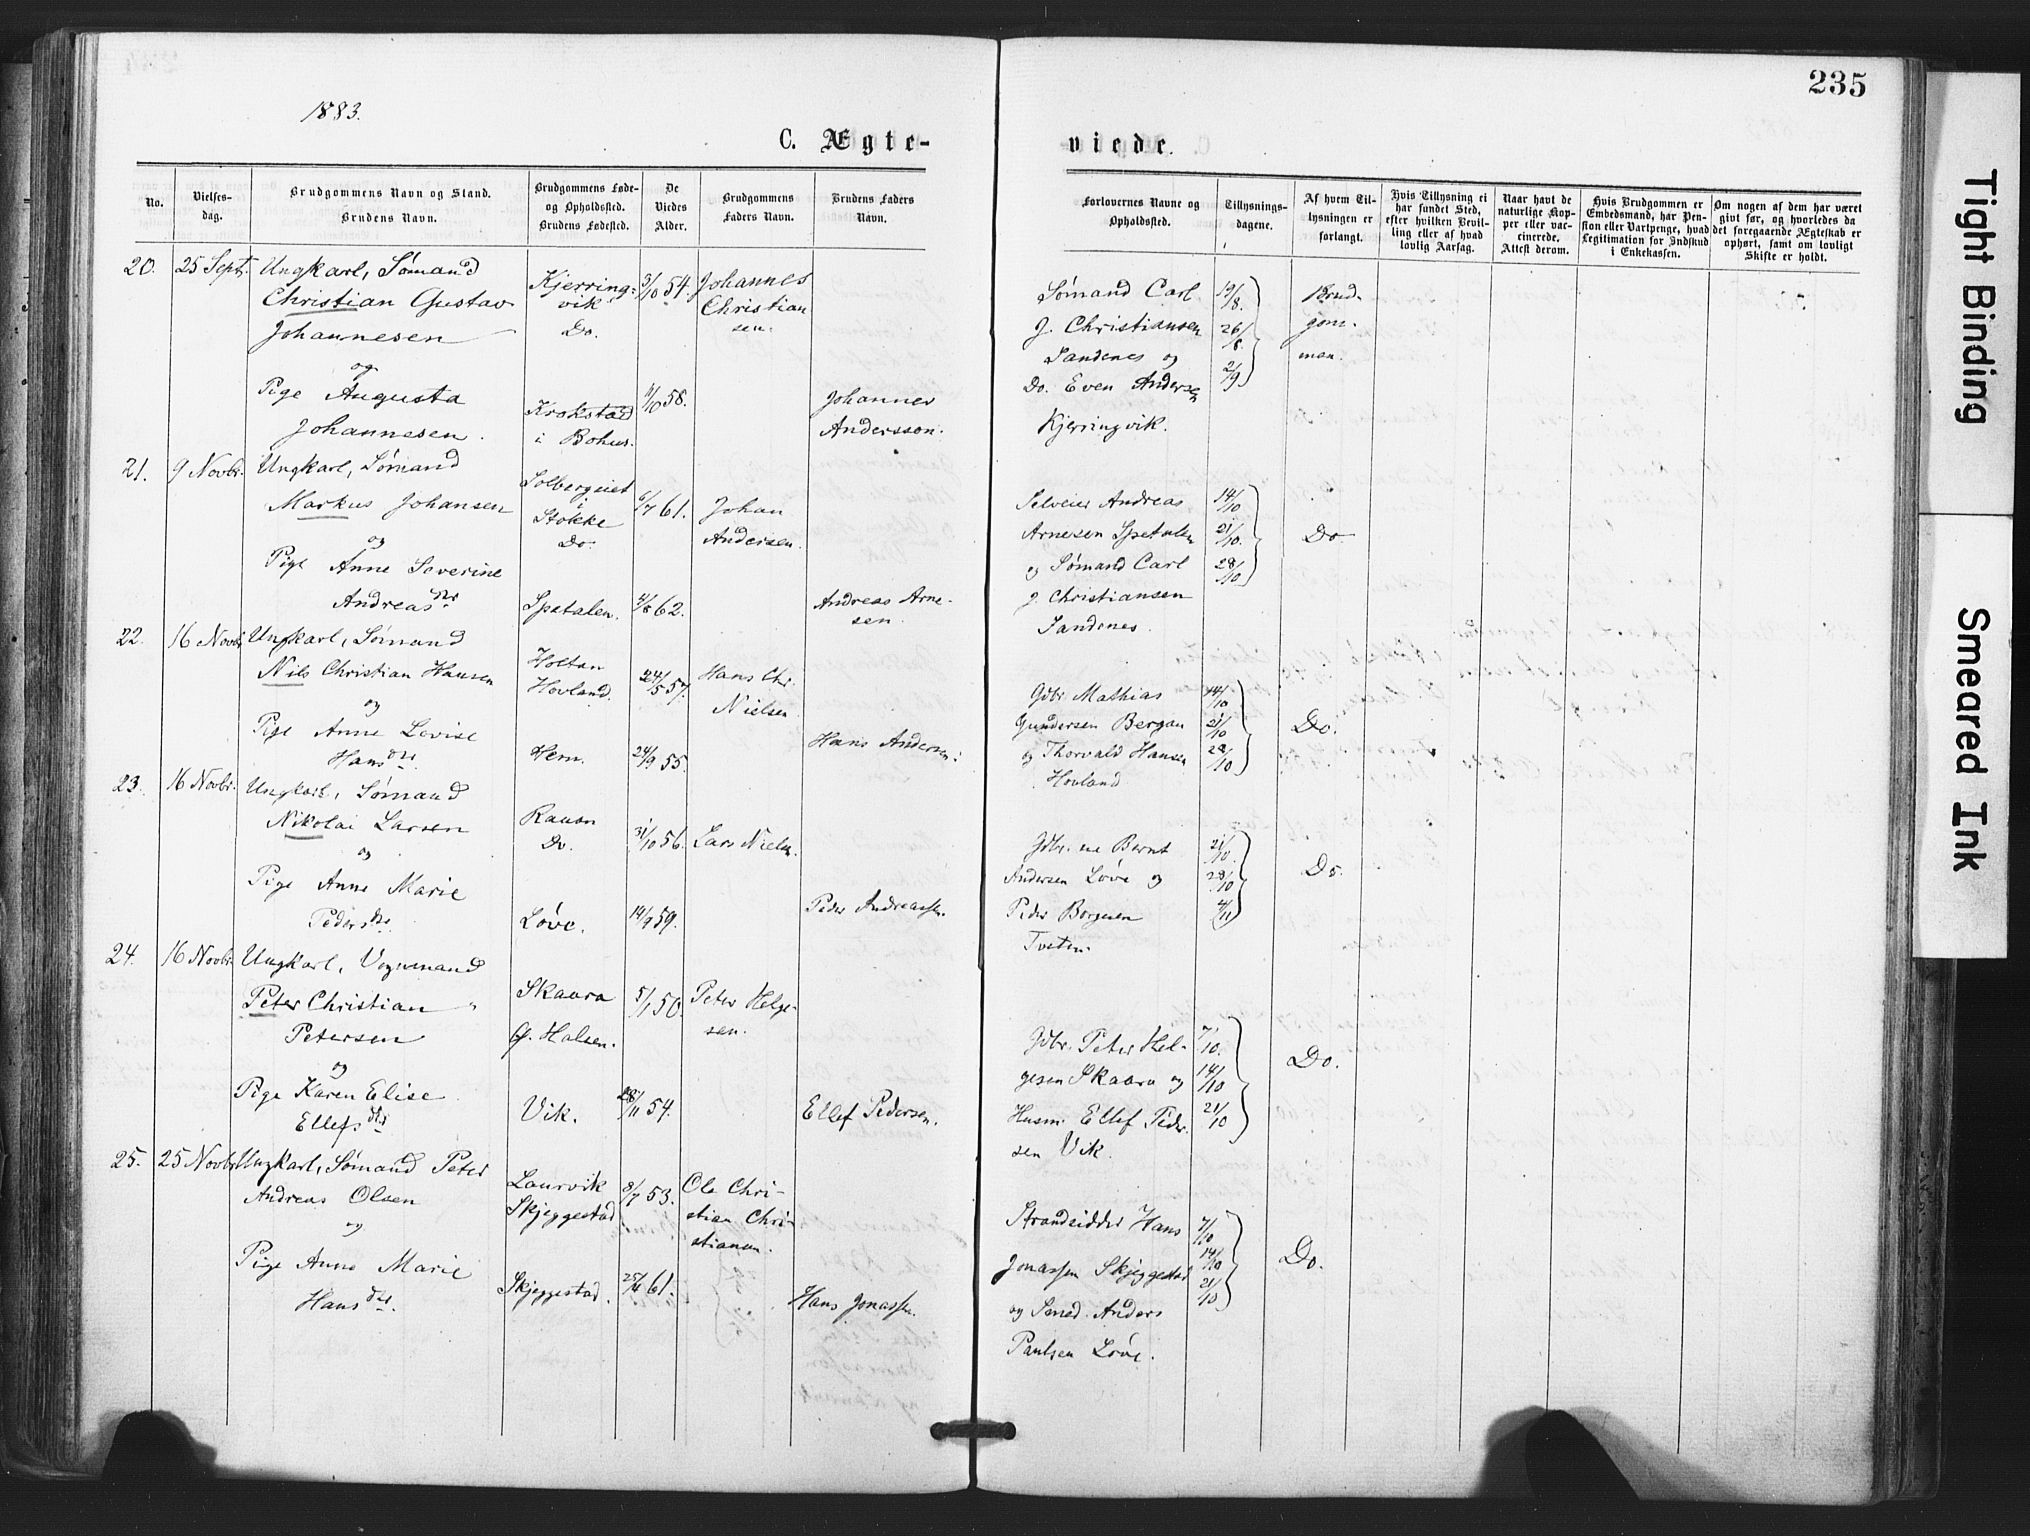 235
1883.
C. Ægte-
viede.
No.
Vielses-
dag.
Brudgommens Navn og Stand.
Brudens Navn.
Brudgommens Føde-
og Opholdssted.
Brudens Fødested.
De
Viedes
Alder.
Brudgommens
Faders Navn.
Brudens Faders
Navn.
Forlovernes Navne og
Opholdssted.
Tillysnings-
dagene.
Af hvem Til-
lysningen er
forlangt.
Hvis Tillysning ei
har fundet Sted,
efter hvilken Bevil-
ling eller af hvad
lovlig Aarsag.
Naar havt de
naturlige Kop-
per eller vac-
cinerede.
Attest derom.
Hvis Brudgommen er
Embedsmand, har Pen-
sion eller Vartpenge, hvad
Legitimation for Indskud
i Enkekassen.
Om nogen af dem har været
givt før, og hvorledes da
det foregaaende Ægteskab er
ophørt, samt om lovligt
Skifte er holdt.
20.
25 Sept.
Ungkarl, Sømand
Christian Gustav
Johannesen
og
Pige Augusta
Johannesen.
Kjerring-
vik
Do.
Krokstad
i Bohus.
3/10 54.
11/10 58.
Johannes
Christian
sen.
Johannes
Andersson.
Sømand Carl
J. Christiansen
Sandenes og
Do. Even Andersen
Kjerringvik.
19/8.
26/8.
2/9
Brud-
gom-
men.
21.
9 Novbr.
Ungkarl, Sømand
Markus Johansen
og
Pige Anne Severine
Andreasdtr
Solbergeiet
i
Stokke
Do.
Spetalen.
6/7 61.
4/8 62.
Johan
Andersen.
Andreas Arne-
sen.
Selveier Andreas
Arnesen Spetalen
og Sømand Carl
J. Christiansen
Sandenes.
14/10
21/10.
28/10
Do
22.
16 Novbr
Ungkarl, Sømand
Nils Christian Hansen
og
Pige Anne Lovise
Hansdtr.
Holtan
Hovland.
Hem.
24/5 57.
24/9 55.
Hans Chr.
Nielsen
Hans Andersen.
Gdbr Mathias
Gundersen Bergan
og Thorvald Hansen
Hovland
14/10
21/10
28/10
Do.
23.
16 Novbr.
Ungkarl, Sømand
Nikolai Larsen
og
Pige Anne Marie
Pedersdtr.
Rauan
Do.
Løve.
31/10 56.
14/9 59.
Lars Nielsen.
Peder Andreassen.
Bernt
Andersen Løve og
Peder Borgersen
Tveten.
21/10.
28/10
4/11
Do.
24.
16 Novbr.
Ungkarl, Vognmand
Peter Christian
Petersen
og
Pige Karen Elise
Ellefsdtr
Skaara
Gf. Halsen.
Vik.
5/1 50.
28/11 54.
Peter Helge-
sen.
Ellef Pedersen.
Gdbr. Peter Hel-
gesen Skaara og
Husm. Ellef Peder-
sen Vik.
7/10.
14/10
21/10
Do.
25.
25 Novbr
Ungkarl, Sømand Peter
Andreas Olsen
og
Pige Anne Marie
Hansdtr.
Laurvik
Skjeggestad
Skjeggestad.
8/7 53.
25/4 61.
Ole Chri-
stian Chri-
stiansen.
Hans Jonassen.
Strandsidder Hans
Jonassen Skjeggestad
og Smed Anders
Paulsen Løve.
7/10
14/10
21/10
Do.
Tight Binding
Smeared Ink